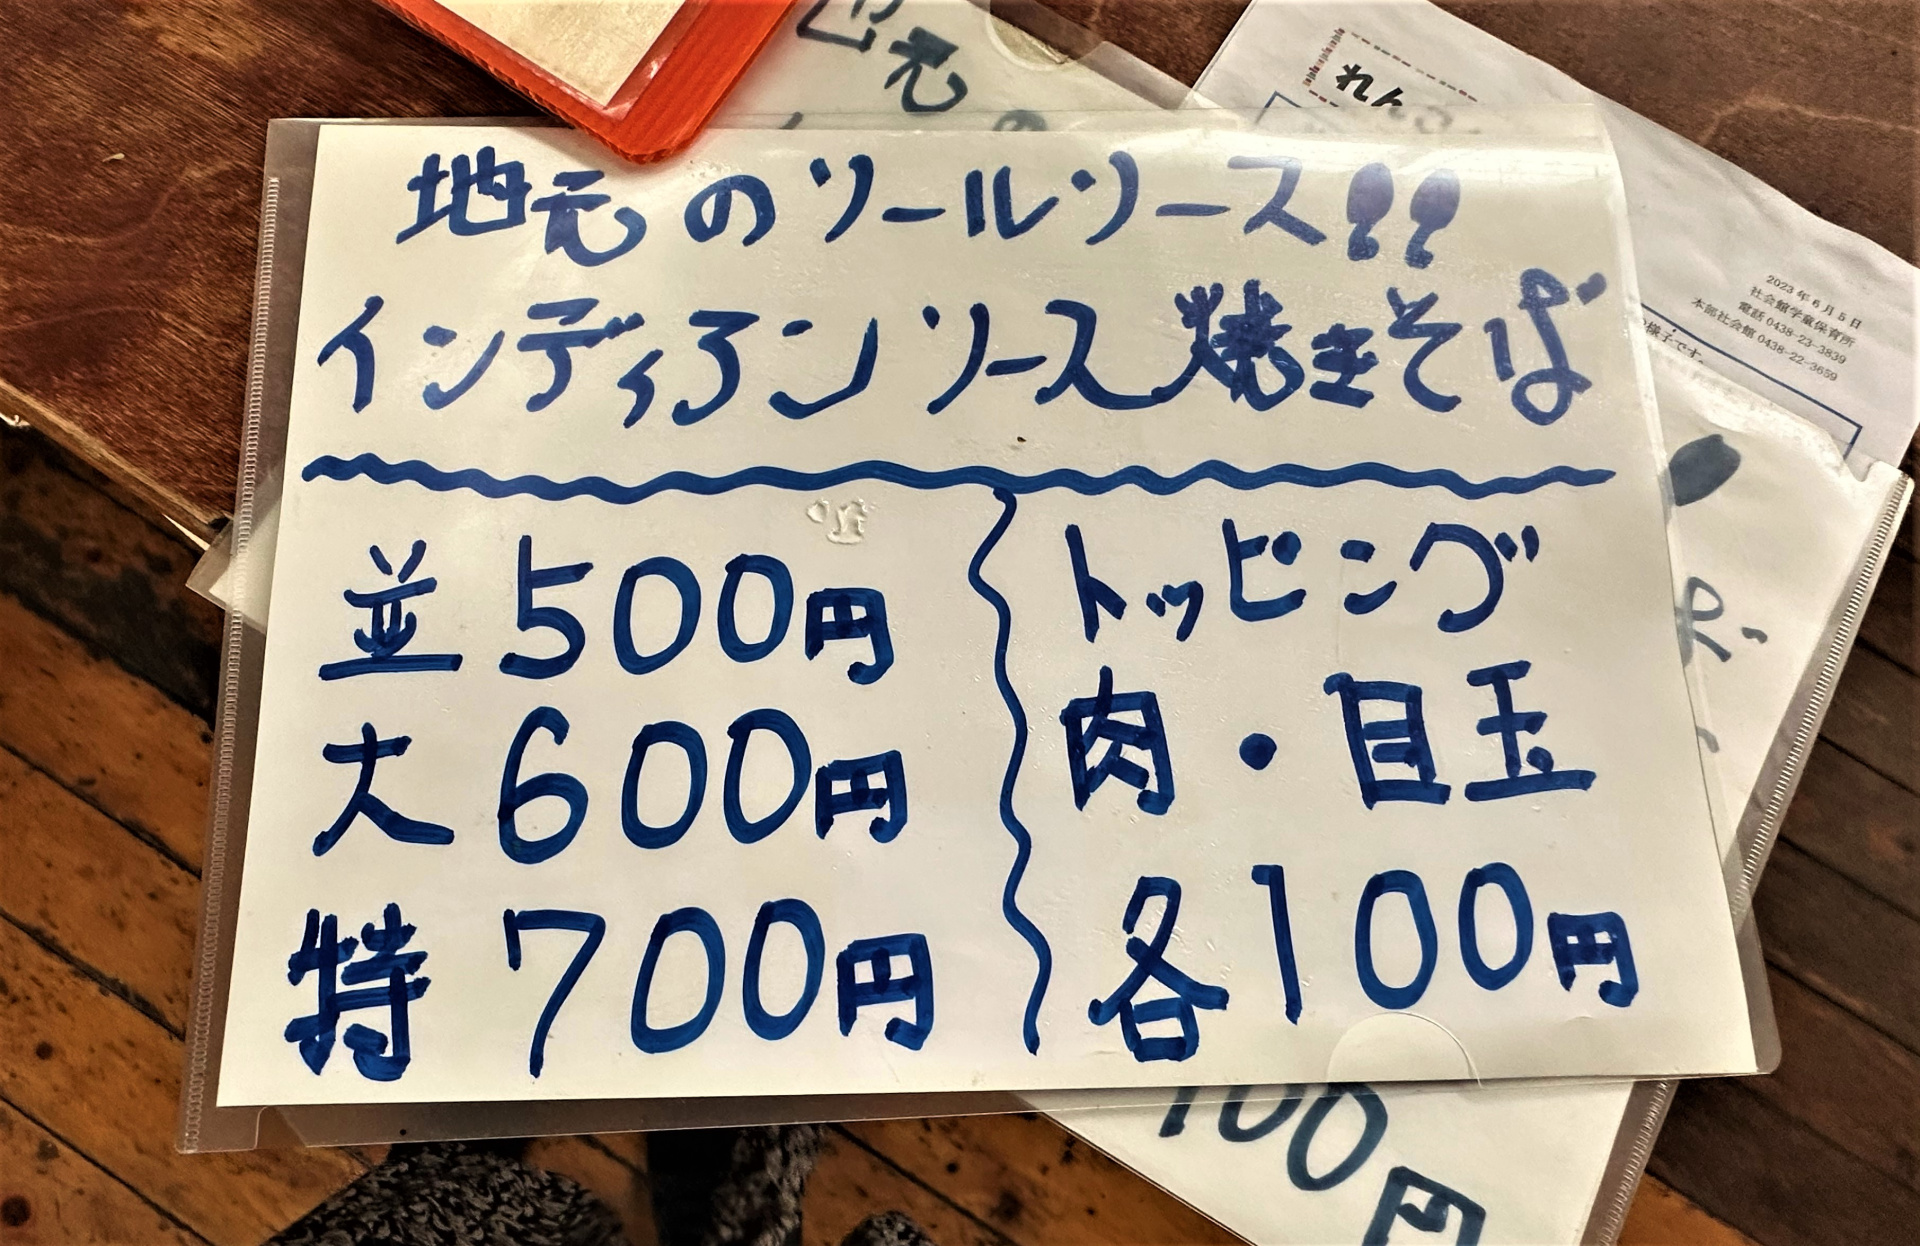 地元のソールソース!!
インディアンソース焼きそば
並 500円
大 600円
特 700円
トッピング
肉・目玉
各100円
2023年6月5日
社会館学童保育所
電話 0438-23-3839
本部社会館 0438-22-3659
様子です。
れん
100円